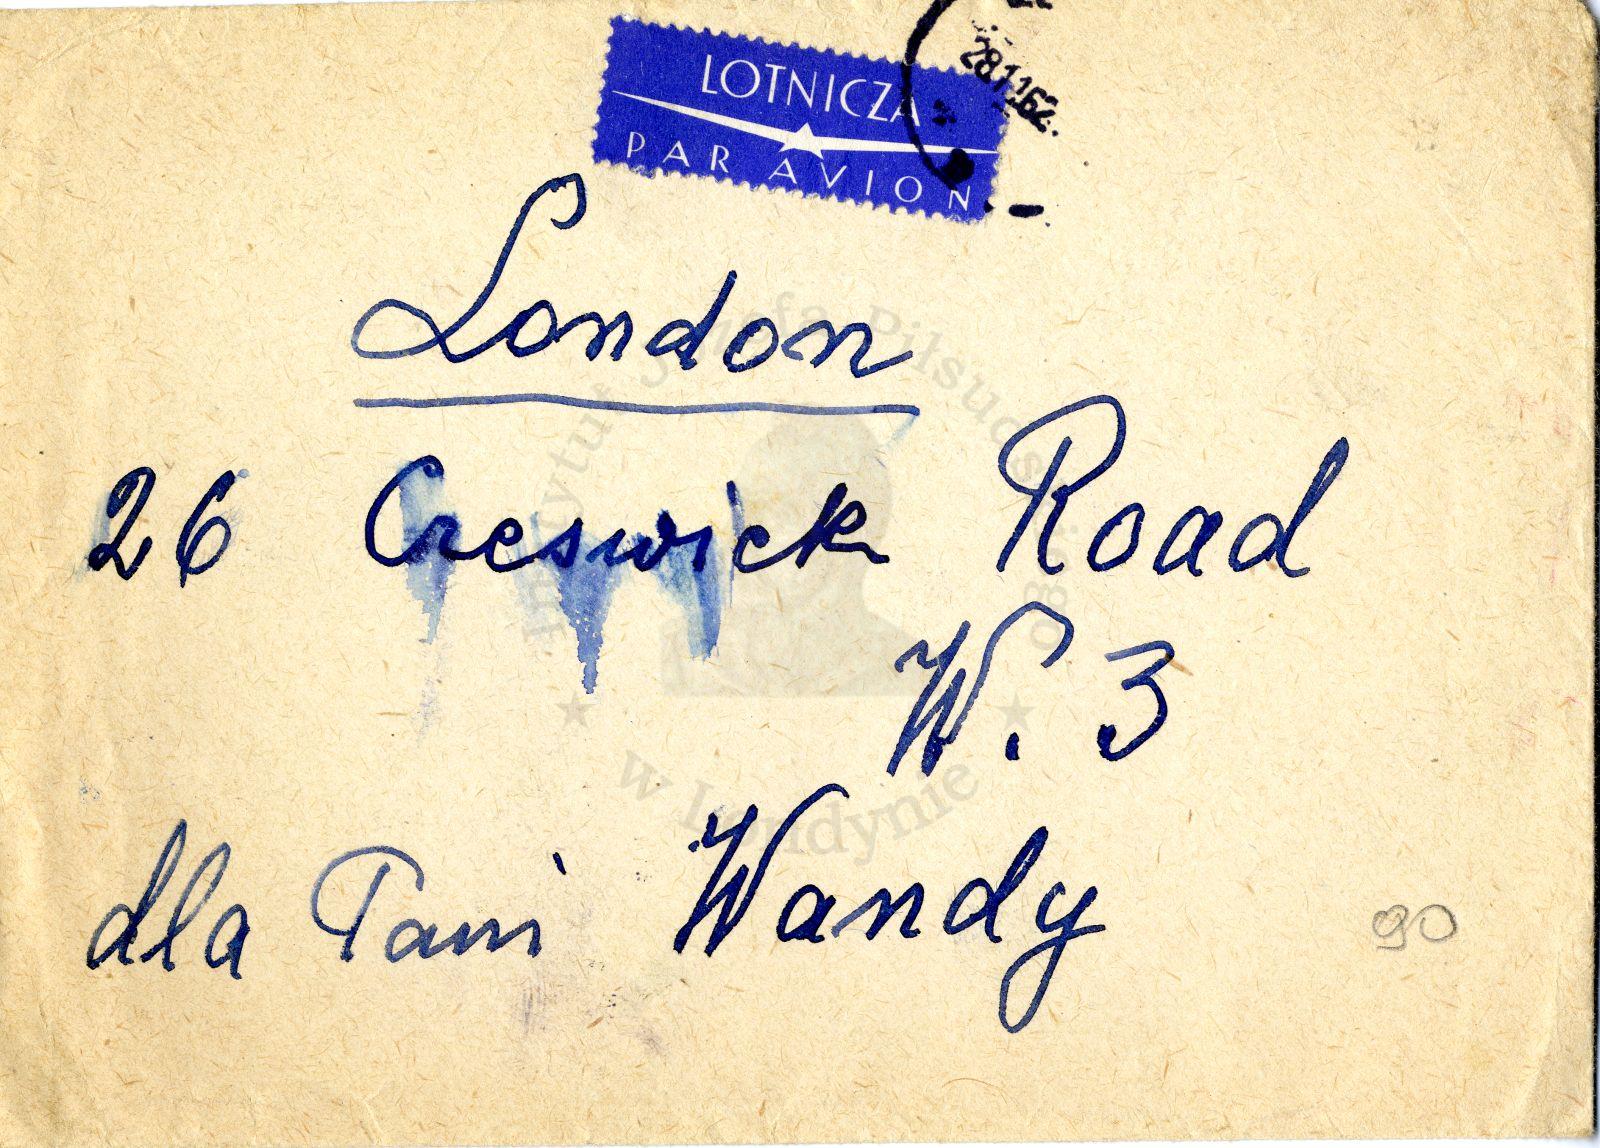 LOTNICZA
PAR AVION
28.11.62.
London
26 Creswick Road
W. 3
dla Pani Wandy
90
Instytut Józefa Piłsudskiego
w Londynie